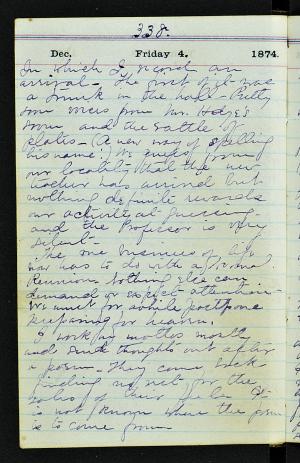 338.
Dec. Friday 4. 1874.
In which I record an
arrival. The most of it was
a trunk in the hall
some voices from Mr. Hayes
room and the rattle of
plates. (A new way of spelling
his name!) We
our locality that the new
teacher has arrived but
nothing definite rewards
our activity at guessing
and the Professor is very
silent.
The one business of life
now has to do with
Reunion. Nothing else can
demand or expect attention.
We must for awhile postpone
preparing for heaven.
I work for mother mostly
and send thoughts out after
a poem. They come back
finding no rest for the
soles of their feet. It
is not known where the poem
is to come from